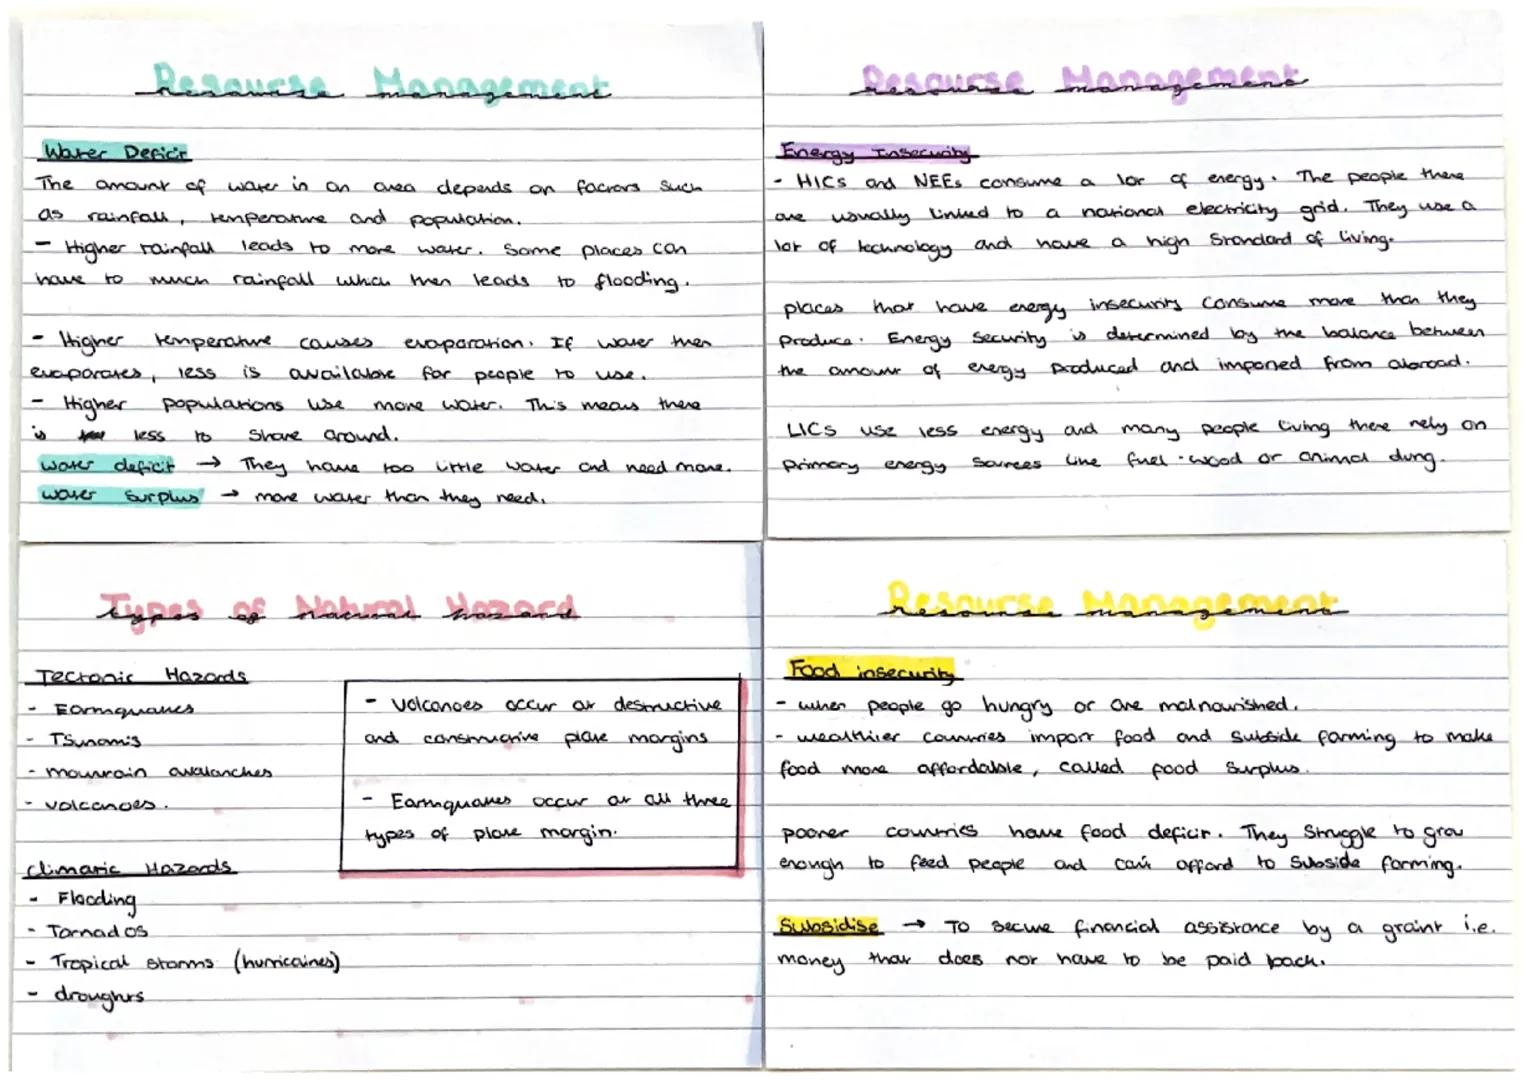 Resourse Management
Water Deficit
The amount of water in an area depends on factors such
as rainfall, temperature and population.
- Higher rainfall leads to more water. Some places can
have to much rainfall which then leads to flooding.
- Higher temperature causes evaporation. If water then
evaporates, less is available for people to use.
- Higher populations use more water. This means there
is less to share around.
water deficit → They have too little water and need more.
water surplus → more water than they need.
Resourse Management
Energy Insecurity
- HICs and NEEs consume a lot of energy. The people there
are usually linked to a national electricity grid. They use a
lot of technology and have a high standard of living.
places that have energy insecurity consume more than they
produce. Energy security is determined by the balance between
the amount of energy produced and imported from abroad.
LICs use less energy and many people living there rely on
primary energy sources like fuel-wood or animal dung.
Types of Natural Hazard
Tectonic Hazards
- Earthquakes
- Tsunamis
- mountain avalanches
- volcanoes.
climatic Hazards
- Flooding
- Tornados
- Tropical storms (hurricaines)
- droughts
- Volcanoes occur at destructive
and constructive plate margins
- Earthquakes occur at all three
types of plate margin.
Resourse Management
Food insecurity
- when people go hungry or are malnourished.
- wealthier countries import food and subside farming to make
food more affordable, called food surplus.
poorer countries have food deficit. They struggle to grow
enough to feed people and can't afford to subside farming.
Subsidise → To secure financial assistance by a graint i.e.
money that does not have to be paid back.